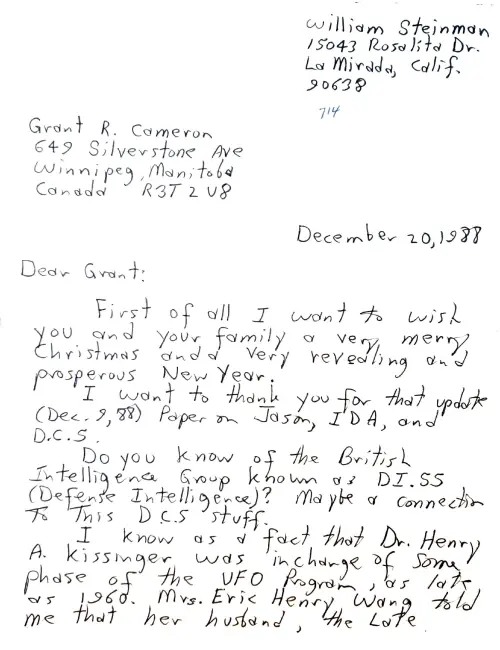 William Steinman
15043 Rosalita Dr.
La Mirada, Calif.
90638
714
Grant R. Cameron
649 Silverstone Ave
Winnipeg, Manitoba
Canada R3T 2V8
December 20, 1988
Dear Grant:
First of all I want to wish
you and your family a very merry
Christmas and a very revealing and
prosperous New Year.
I want to thank you for that update
(Dec. 9, 88) Paper on Jason, IDA, and
D.C.S.
Do you know of the British
Intelligence Group known as DI.SS
(Defense Intelligence)? Maybe a connection
To This D.C.S stuff.
I know as a fact that Dr. Henry
A. Kissinger was in charge of some
phase of the UFO Program, as late
as 1960. Mrs. Eric Henry Wang told
me that her husband, the Late